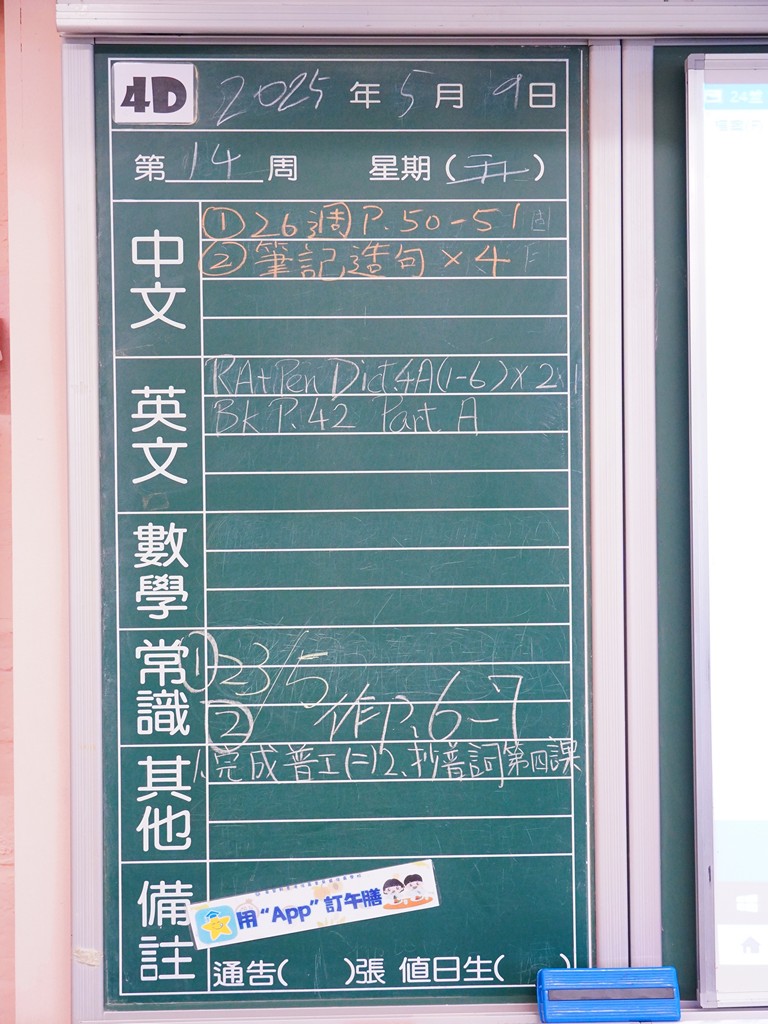 4D 2025年5月9日
第14周 星期(五)
中文
①26週 P.50-51
②筆記造句×4
英文
RA+Pen Dict.4A(1-6)×2
Bk P.42 Part A
數學
常識
①23/5
②作P.6-7
其他
1.完成普工(二)2.抄普詞第四課
備註
用“App”訂午膳
通告( )張 值日生( )
24